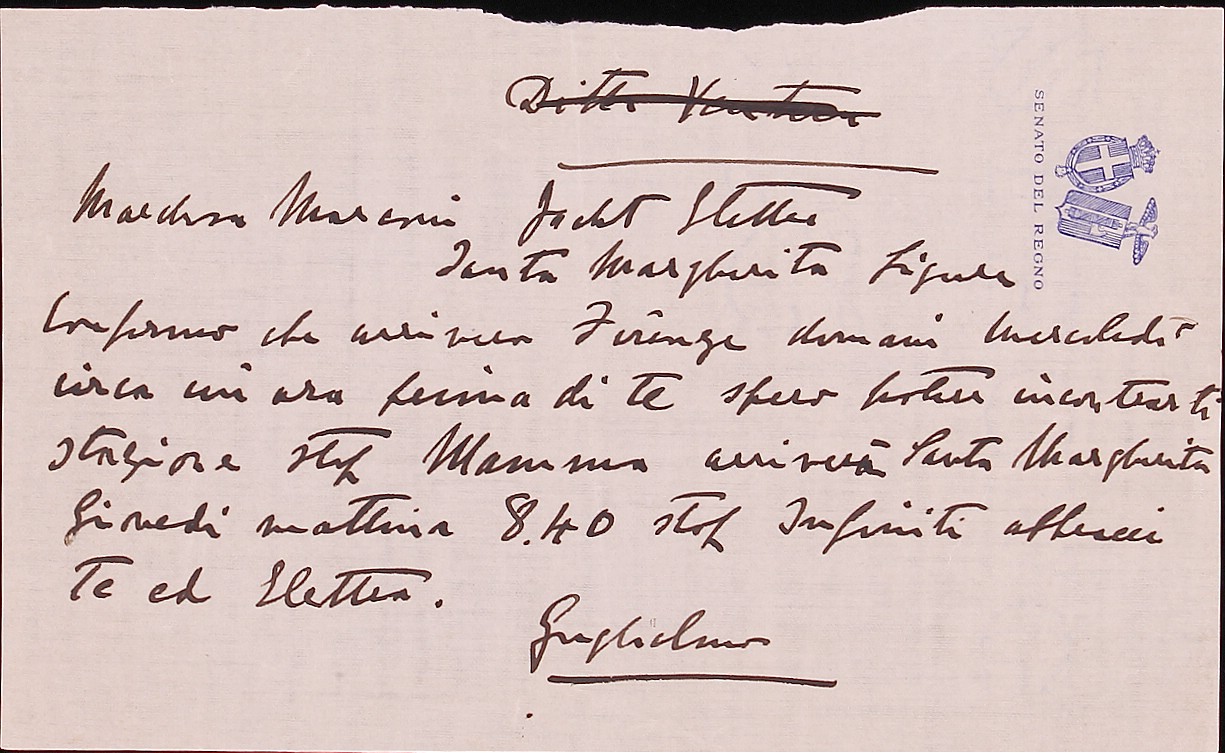 Ditta
SENATO DEL REGNO
Marchesa Marconi Yacht Elettra
Santa Margherita Ligure
Confermo che arriverò Firenze domani Mercoledì
circa un ora prima di te spero poter incontrarti
stazione stop Mamma arriverà Santa Margherita
Giovedì mattina 8.40 stop Infiniti abbracci
te ed Elettra.
Guglielmo